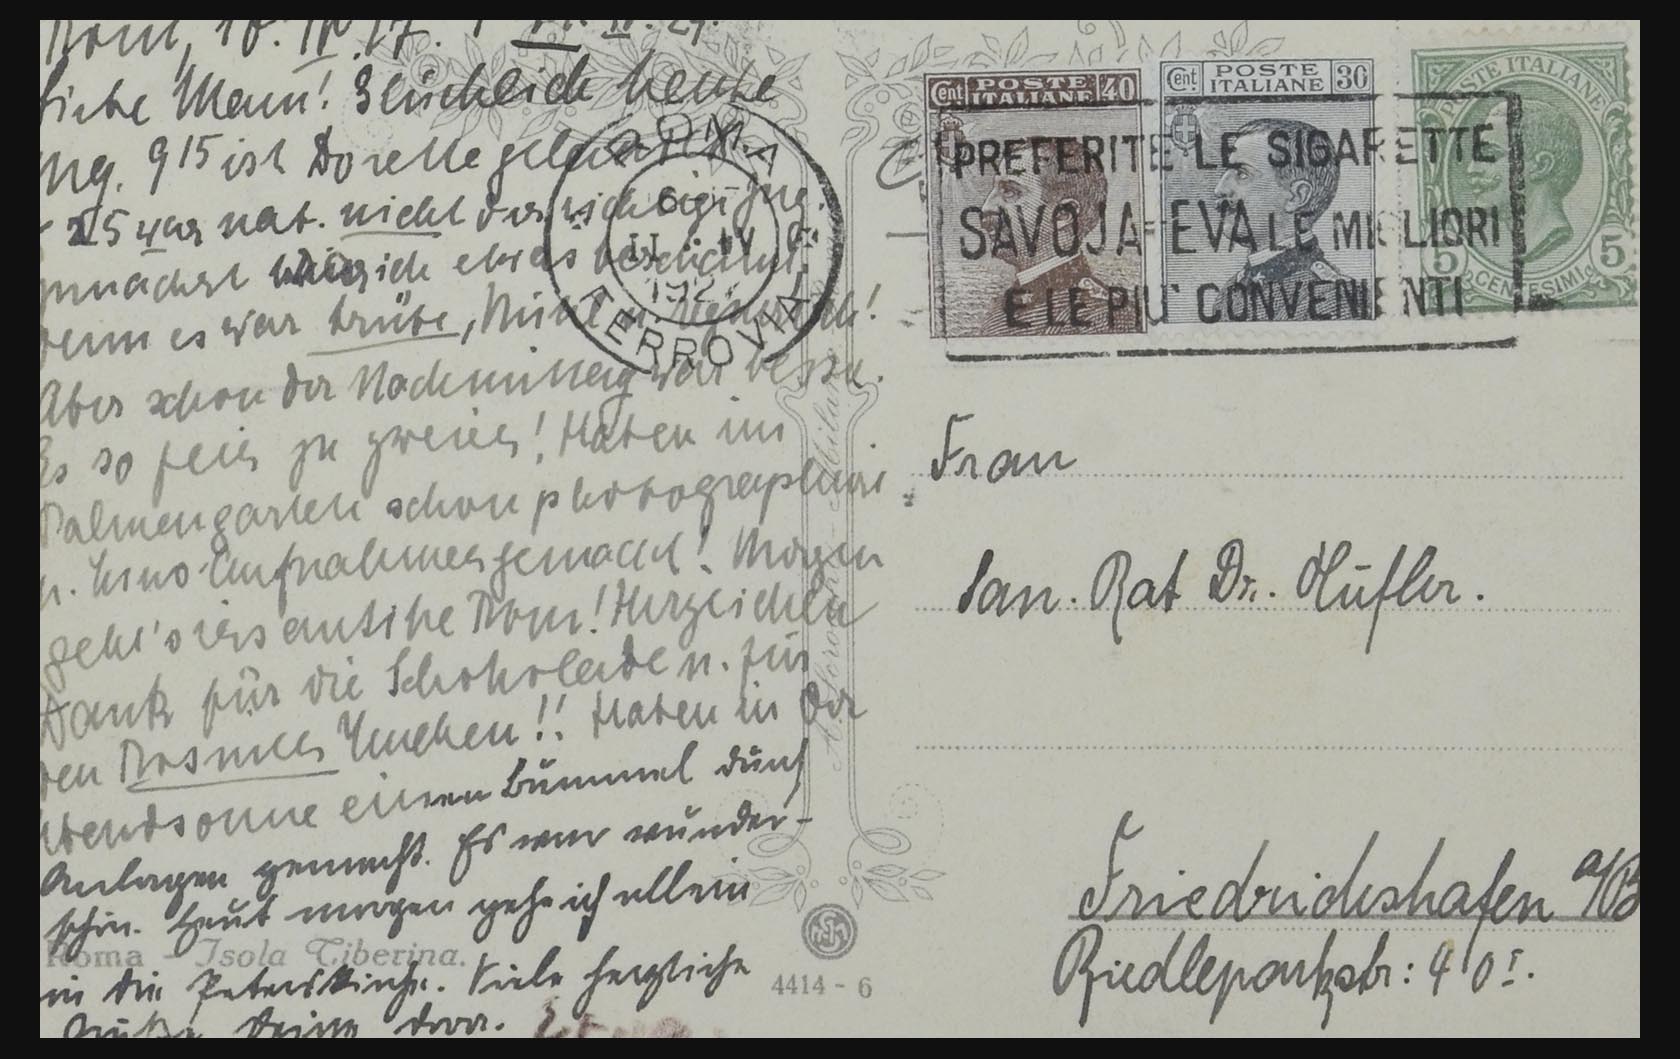 Rom, 10. IV. 27.
Liebe Mama! Glücklich heute
Mg. 9 15 ist Dorette gelandet.
25 war nat. nicht der richtige Zug.
zunächst ich etwas
denn es war trübe,
Aber schon der Nachmittag war besser.
Es so fein zu zweien! Haben im
Palmengarten schon photographiert
u. Kino-Aufnahmen gemacht! Morgen
geht's ins antike Rom! Herzlichen
Dank für die Schokolade u. für
den Rosinen Kuchen!! Haben in der
Abendsonne einen Bummel durch
Anlagen gemacht. Es war wunder-
schön. Heut morgen gehe ich allein
in die Peterskirche. Viele herzliche
Grüße Deine
Roma - Isola Tiberina.
4414 - 6
A. Scrocchi - Milano
ROMA
FERROVIA
6
11 IV
1927
Cent POSTE ITALIANE 40
Cent POSTE ITALIANE 30
POSTE ITALIANE
5 CENTESIMI 5
PREFERITE LE SIGARETTE
SAVOJA-EVA LE MIGLIORI
E LE PIU' CONVENIENTI
Frau
San. Rat Dr. Hüfler.
Friedrichshafen a/B
Riedleparkstr: 40 I.